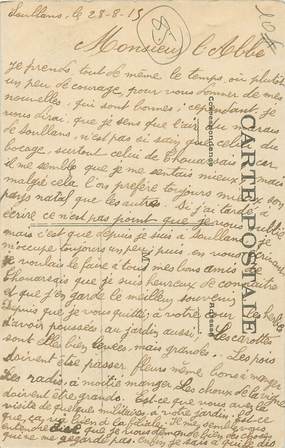 Soullans, le 28-8-15
Monsieur l'Abbé
Je prends, tout de même le temps, ou plutôt
un peu de courage, pour vous donner de mes
nouvelles, qui sont bonnes; cependant, je
vous dirai, que je sens que l'air du marais
de Soullans, n'est pas si sain que celui du
bocage, surtout celui de Thouarsais, car
il me semble que je me sentais mieux, mais
malgré cela l'on préfère toujours mieux son
pays natal que les autres. Si j'ai tardé à
écrire ce n'est pas point que je vous oublie
mais c'est que depuis je suis à Soullans, je
m'occupe toujours un peu; puis, en vous écrivant
je voulais le faire à tous mes bons amis de
Thouarsais que je suis heureux de connaître
et que j'en garde le meilleur souvenir. Les herbes
depuis que je vous quitté, à votre cour
d'avoir poussées au jardin aussi. Les carottes
sont bien levées mais grandes. Les pois
doivent être passer fleurs même bons à manger
Les radis, à moitié manger. Les choux de la vigne
doivent être grands. Est-ce que vous avez la
visite de quelques militaires, à votre jardin. Est-ce
que, ça se vend. Il me semble que je suis
entendre dire que je vous demande bien des choses
qui ne me regarde pas. Enfin, je suis
CARTE POSTALE
Correspondance
Adresse
M